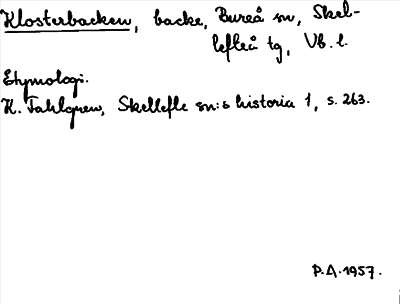 Klosterbacken, backe, Bureå sn, Skel-
lefteå tg, Vb. l.
Etymologi.
K. Fahlgren, Skellefte sn:s historia 1, s. 263.
P.A. 1957.